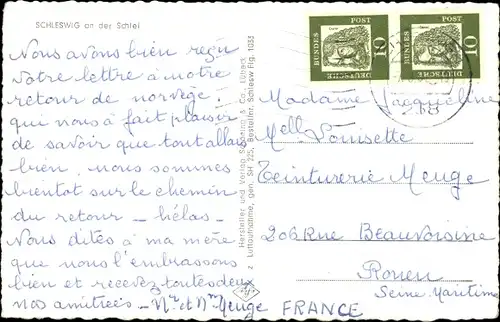 SCHLESWIG an der Schlei
Nous avons bien reçu
votre lettre à notre
retour de norvège.
qui nous à fait plaisir
de savoir que tout allais
bien. nous sommes
bientot sur le chemin
du retour - hélas -
Nous dites à ma mère
que nous l'embrassons
bien et recevez toutes deux
nos amitiées -
et
Meuge
Hersteller und Verlag Schöning & Co., Lübeck
Luftaufnahme, gen. SH 225, Bestellnr. Schlesw Flg. 1033
DEUTSCHE BUNDESPOST 10
DEUTSCHE BUNDESPOST 10
Madame Jacqueline
Mell Louisette
Teinturerie Meuge
206 Rue Beauvoisine
Rouen
Seine Maritime
FRANCE